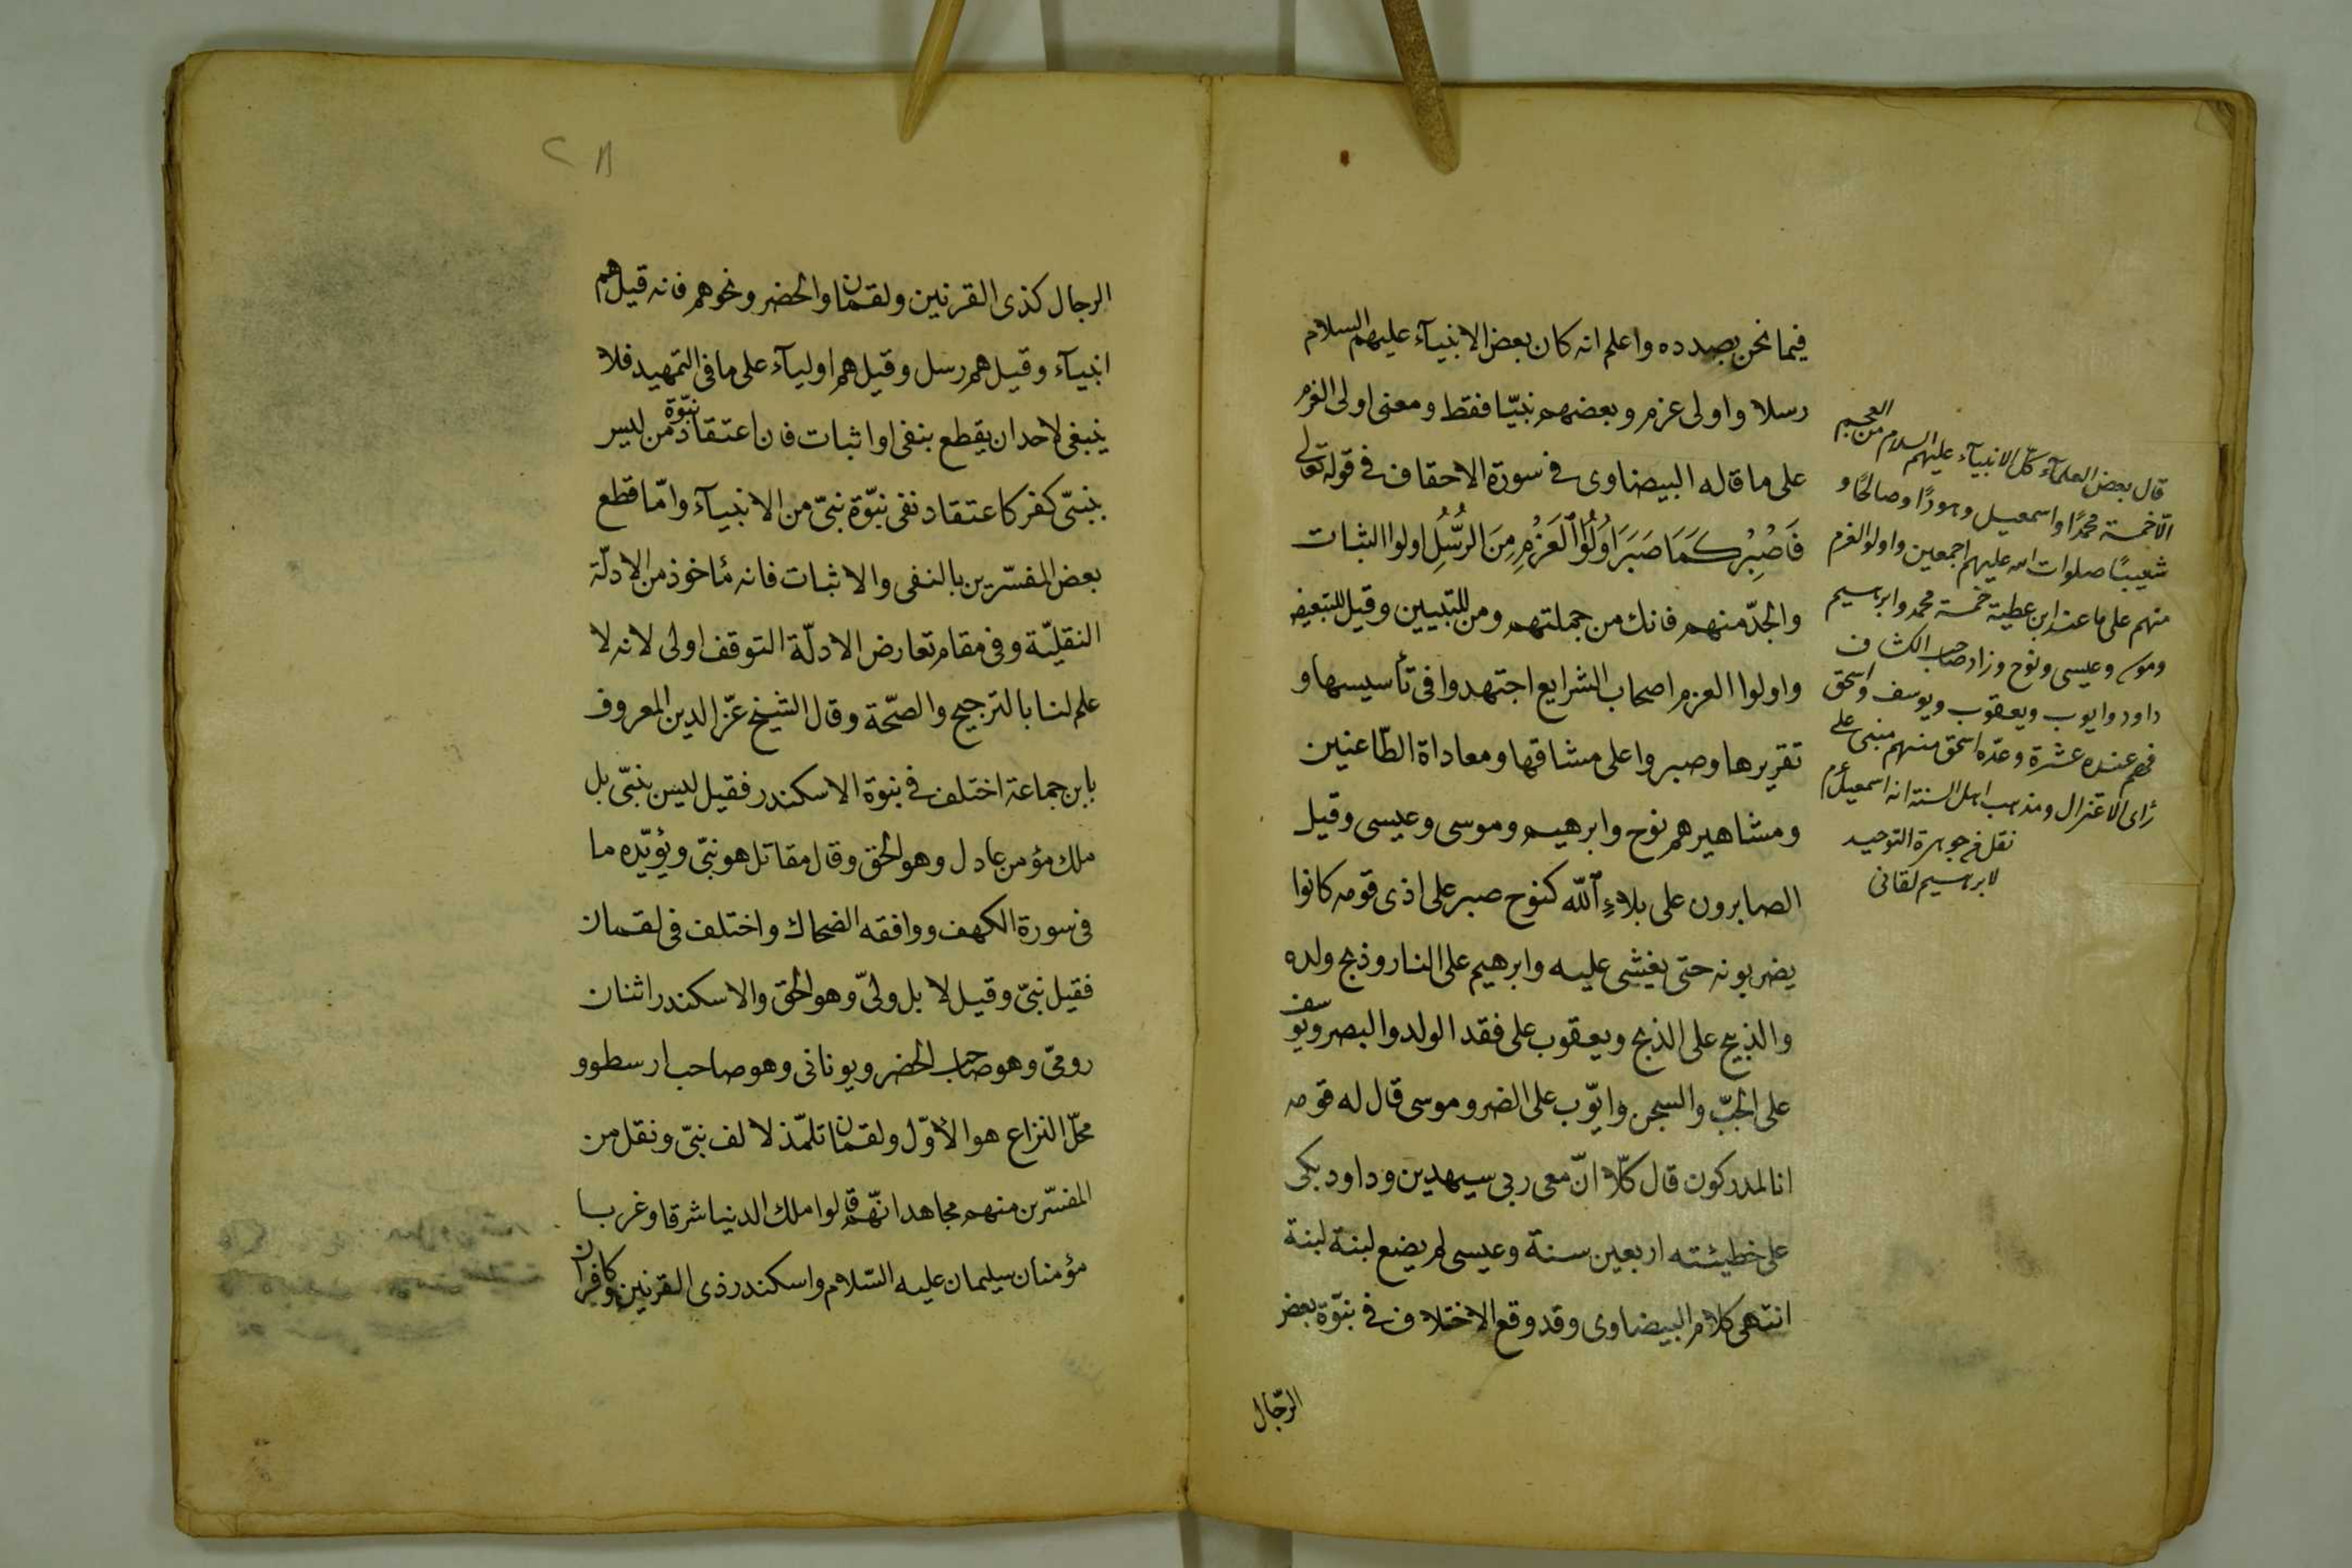 فيما نحن بصدده واعلم انه كان بعض الانبيآء عليهم السلام
رسلا واولى عزم وبعضهم نبيّا فقط ومعنى اولى العزم
على ما قاله البيضاوى فى سورة الاحقاف فى قوله تعالى
فَاصْبِرْ كَمَا صَبَرَ اُولُوا ٱلْعَزْمِ مِنَ الرُّسُلِ اولوا الثبات
والجدّ منهم فانك من جملتهم ومن للتبيين وقيل للتبعيض
واولوا العزم اصحاب الشرايع اجتهدوا فى تأسيسها و
تقريرها وصبروا على مشاقها ومعاداة الطّاعنين
ومشاهيرهم نوح وابرهيم وموسى وعيسى وقيل
الصابرون على بلاءِ ٱللّه كنوح صبر على اذى قومه كانوا
يضربونه حتى يغشى عليه وابرهيم على النار وذبح ولده
والذبيح على الذبح ويعقوب على فقد الولد والبصر ويوسف
على الجبّ والسجن وايّوب على الضر وموسى قال له قومه
انا لمدركون قال كلّا انّ معى ربى سيهدين وداود بكى
على خطيئته اربعين سنة وعيسى لم يضع لبنة لبنة
انتهى كلام البيضاوى وقد وقع الاختلاف فى نبوّة بعض
الرّجال
قال بعض العلمآء كلّ الانبيآء عليهم السلام من العجم
الّا خمسة محمّدا واسمعيل وهودًا وصالحًا و
شعيبًا صلوات الله عليهم اجمعين واولو العزم
منهم على ما عند ابن عطية خمسة محمد وابرهيم
وموسى وعيسى ونوح وزاد صاحب الكشاف
داود وايوب ويعقوب ويوسف واسحق
فهم عنده عشرة وعدّه اسحق منهم مبنى على
رأى الاعتزال ومذهب اهل السنة انه اسمعيل عم
نقل فى جوهرة التوحيد
لابرهيم لقانى
٢٨
الرجال كذى القرنين ولقمان والخضر ونحوهم فانه قيل هم
انبيآء وقيل هم رسل وقيل هم اوليآء على ما فى التمهيد فلا
ينبغى لاحد ان يقطع بنفى او اثبات فان اعتقاد نبوّة من ليس
بنبىّ كفر كاعتقاد نفى نبوّة نبىّ من الانبيآء وامّا قطع
بعض المفسّرين بالنفى والاثبات فانه مأخوذ من الادلّة
النقليّة وفى مقام تعارض الادلّة التوقف اولى لانه لا
علم لنا بالترجيح والصحّة وقال الشيخ عزّ الدين المعروف
بابن جماعة اختلف فى نبوّة الاسكندر فقيل ليس بنبىّ بل
ملك مؤمن عادل وهو الحق وقال مقاتل هو نبىّ ويؤيّده ما
فى سورة الكهف ووافقه الضحاك واختلف فى لقمان
فقيل نبىّ وقيل لا بل ولىّ وهو الحق والاسكندر اثنان
رومىّ وهو صاحب الخضر ويونانى وهو صاحب ارسطو و
محلّ النزاع هو الاوّل ولقمان تلمّذ لالف نبىّ ونقل من
المفسّرين منهم مجاهد انّهم قالوا ملك الدنيا شرقا وغربا
مؤمنان سليمان عليه السّلام واسكندر ذى القرنين وكافران